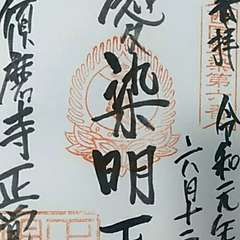 奉拝 令和元年
六月十二
愛染明王
須磨寺正覚